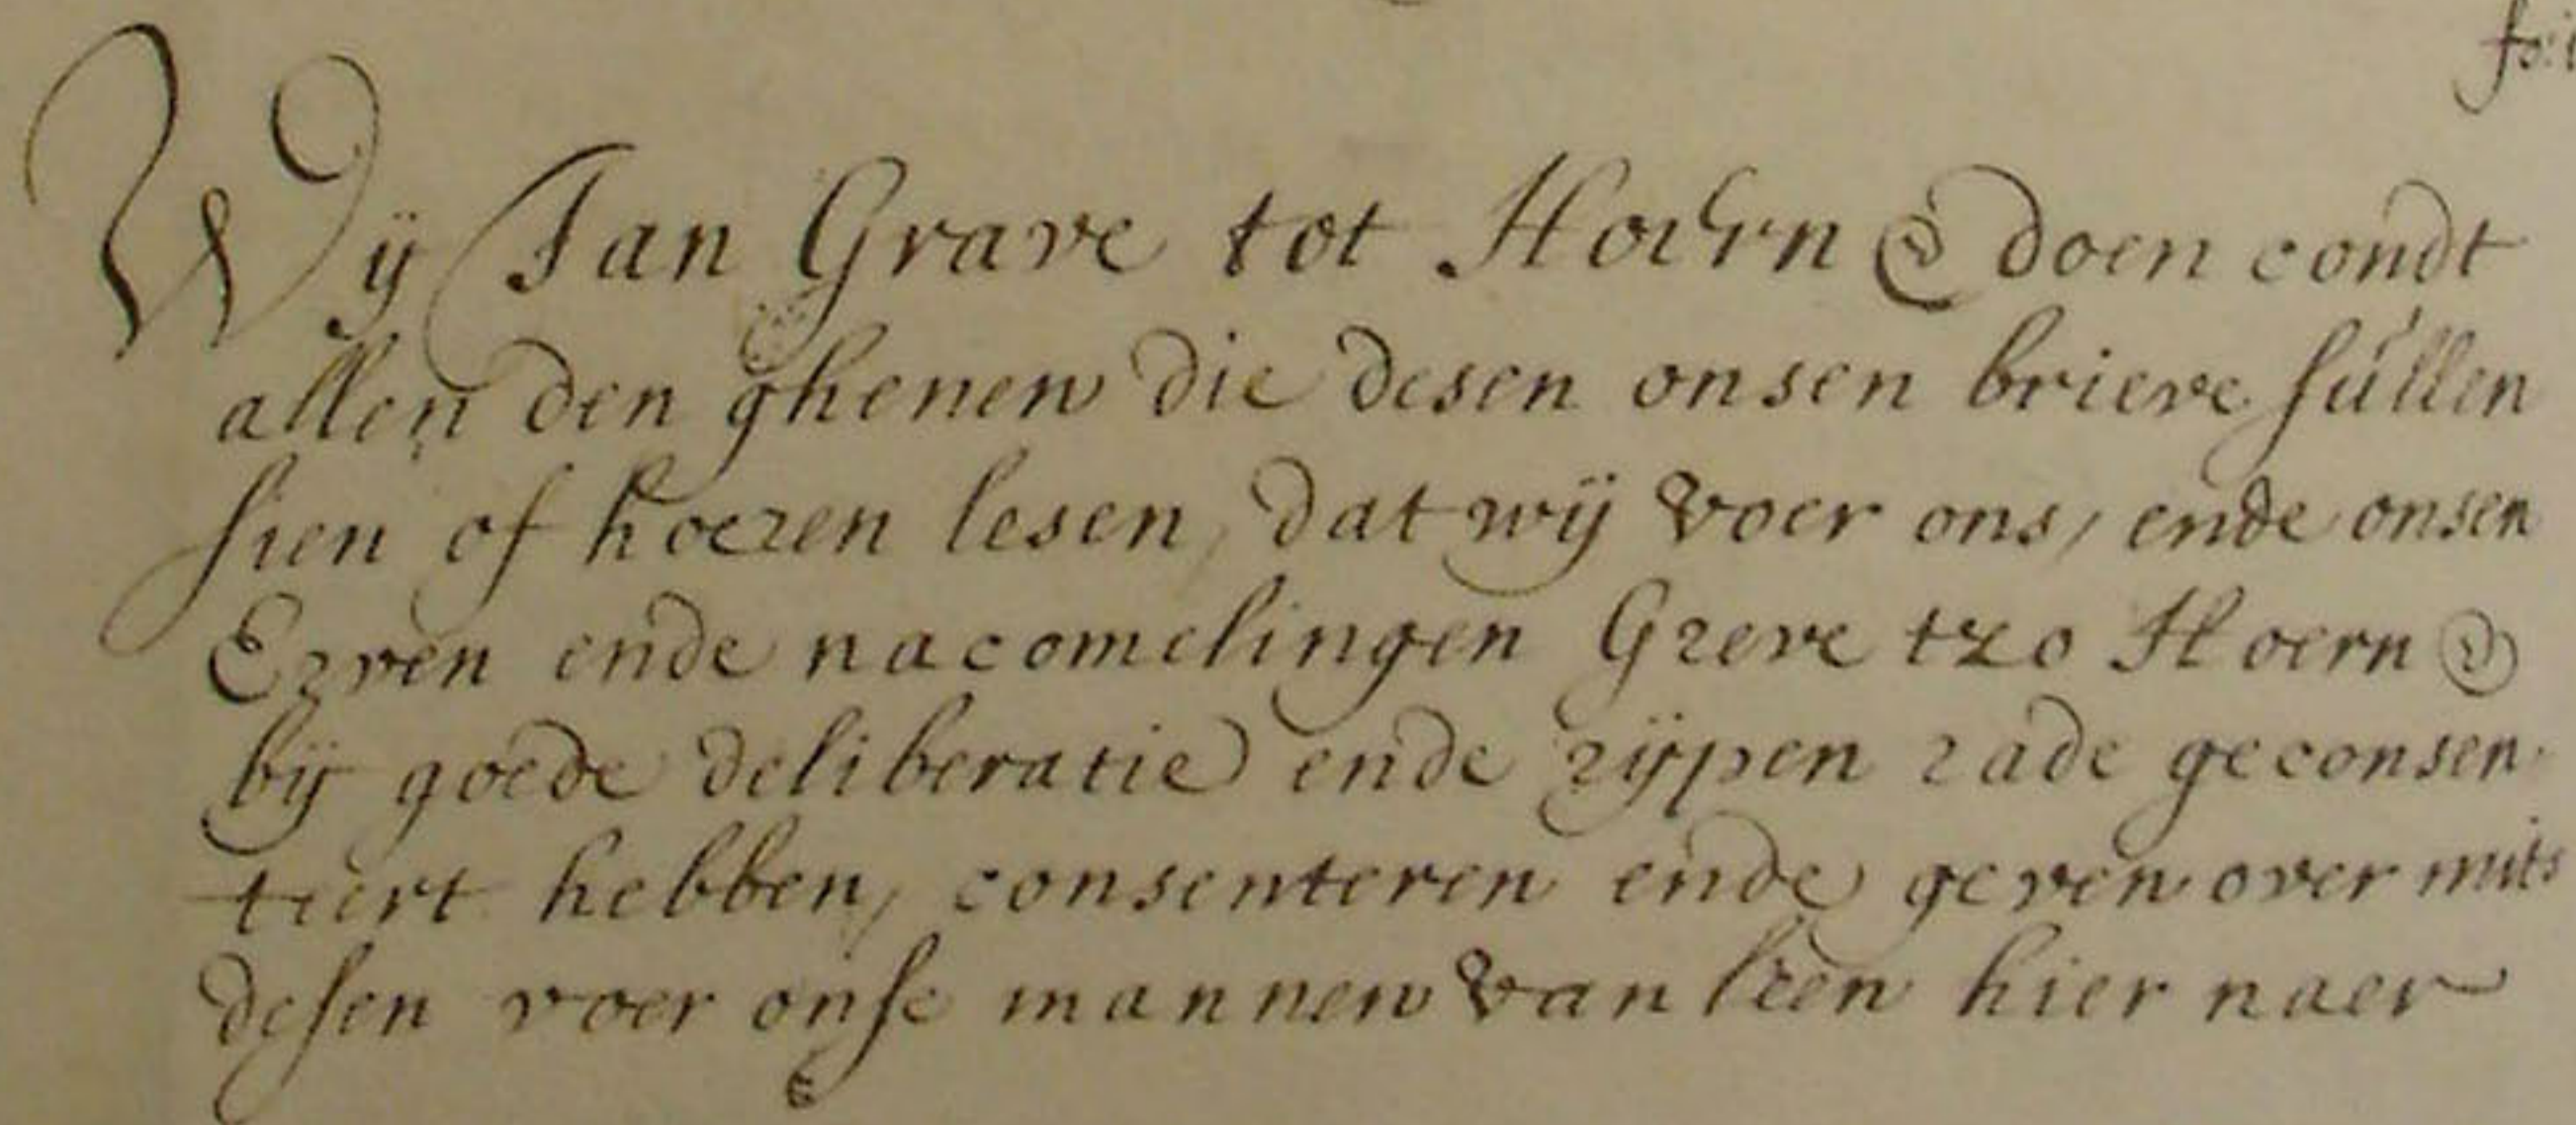 fo: 1
Wij Jan Grave tot Hoern & doen condt
allen den ghenen die desen onsen brieve sullen
sien of hoeren lesen, dat wij voer ons, ende onsen
Erven ende nacomelingen Greve tzo Hoern &
bij goede deliberatie ende rijpen rade geconsen-
teert hebben, consenteren ende geven over mits
desen voer onse mannen van leen hier naer